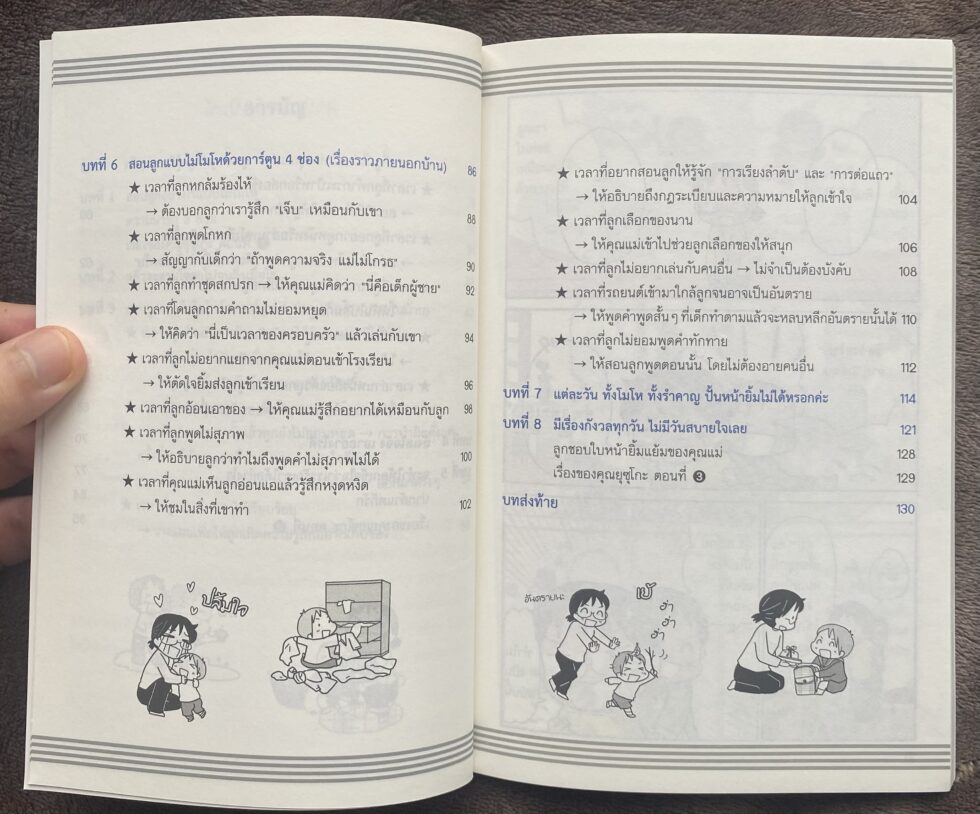 บทที่ 6 สอนลูกแบบไม่โมโหด้วยการ์ตูน 4 ช่อง (เรื่องราวภายนอกบ้าน) 86
★ เวลาที่ลูกหกล้มร้องไห้
→ ต้องบอกลูกว่าเรารู้สึก "เจ็บ" เหมือนกับเขา 88
★ เวลาที่ลูกพูดโกหก
→ สัญญากับเด็กว่า "ถ้าพูดความจริง แม่ไม่โกรธ" 90
★ เวลาที่ลูกทำชุดสกปรก → ให้คุณแม่คิดว่า "นี่คือเด็กผู้ชาย" 92
★ เวลาที่โดนลูกถามคำถามไม่ยอมหยุด
→ ให้คิดว่า "นี่เป็นเวลาของครอบครัว" แล้วเล่นกับเขา 94
★ เวลาที่ลูกไม่อยากแยกจากคุณแม่ตอนเข้าโรงเรียน
→ ให้ตัดใจยิ้มส่งลูกเข้าเรียน 96
★ เวลาที่ลูกอ้อนเอาของ → ให้คุณแม่รู้สึกอยากได้เหมือนกับลูก 98
★ เวลาที่ลูกพูดไม่สุภาพ
→ ให้อธิบายลูกว่าทำไมถึงพูดคำไม่สุภาพไม่ได้ 100
★ เวลาที่คุณแม่เห็นลูกอ่อนแอแล้วรู้สึกหงุดหงิด
→ ให้ชมในสิ่งที่เขาทำ 102
ปลื้มใจ
★ เวลาที่อยากสอนลูกให้รู้จัก "การเรียงลำดับ" และ "การต่อแถว"
→ ให้อธิบายถึงกฎระเบียบและความหมายให้ลูกเข้าใจ 104
★ เวลาที่ลูกเลือกของนาน
→ ให้คุณแม่เข้าไปช่วยลูกเลือกของให้สนุก 106
★ เวลาที่ลูกไม่อยากเล่นกับคนอื่น → ไม่จำเป็นต้องบังคับ 108
★ เวลาที่รถยนต์เข้ามาใกล้ลูกจนอาจเป็นอันตราย
→ ให้พูดคำพูดสั้นๆ ที่เด็กทำตามแล้วจะหลบหลีกอันตรายนั้นได้ 110
★ เวลาที่ลูกไม่ยอมพูดคำทักทาย
→ ให้สอนลูกพูดตอนนั้น โดยไม่ต้องอายคนอื่น 112
บทที่ 7 แต่ละวัน ทั้งโมโห ทั้งรำคาญ ปั้นหน้ายิ้มไม่ได้หรอกค่ะ 114
บทที่ 8 มีเรื่องกังวลทุกวัน ไม่มีวันสบายใจเลย 121
ลูกชอบใบหน้ายิ้มแย้มของคุณแม่ 128
เรื่องของคุณยุซุโกะ ตอนที่ ❸ 129
บทส่งท้าย 130
อันตรายนะ
ฮ่า
ฮ่า
ฮ่า